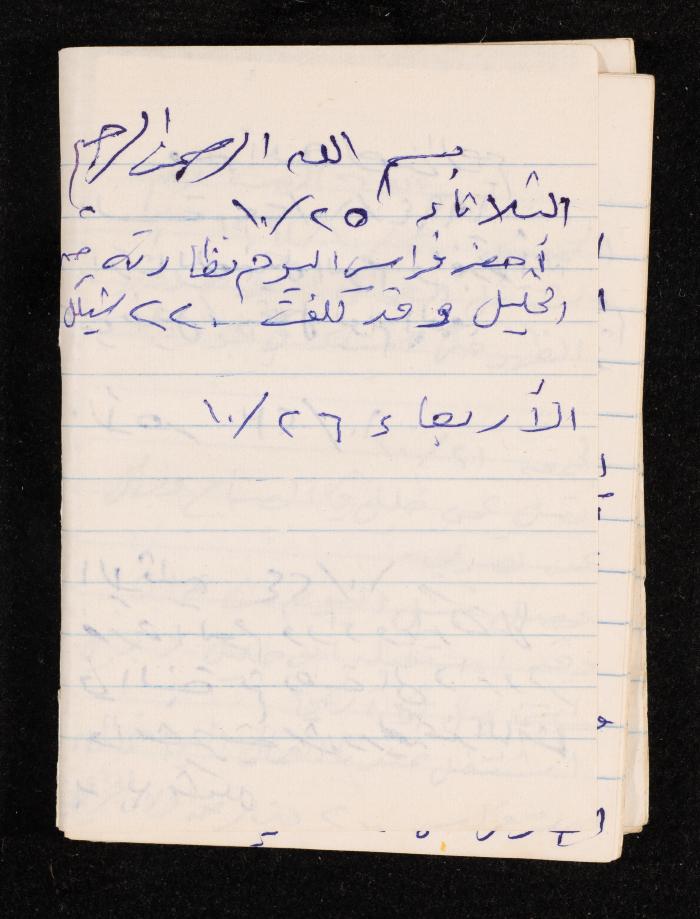 بسم الله الرحمن الرحيم
الثلاثاء ١٠/٢٥
أحضر فراس اليوم نظارته من
الخليل وقد كلفت ٢٢٠ شيكل
الأربعاء ١٠/٢٦